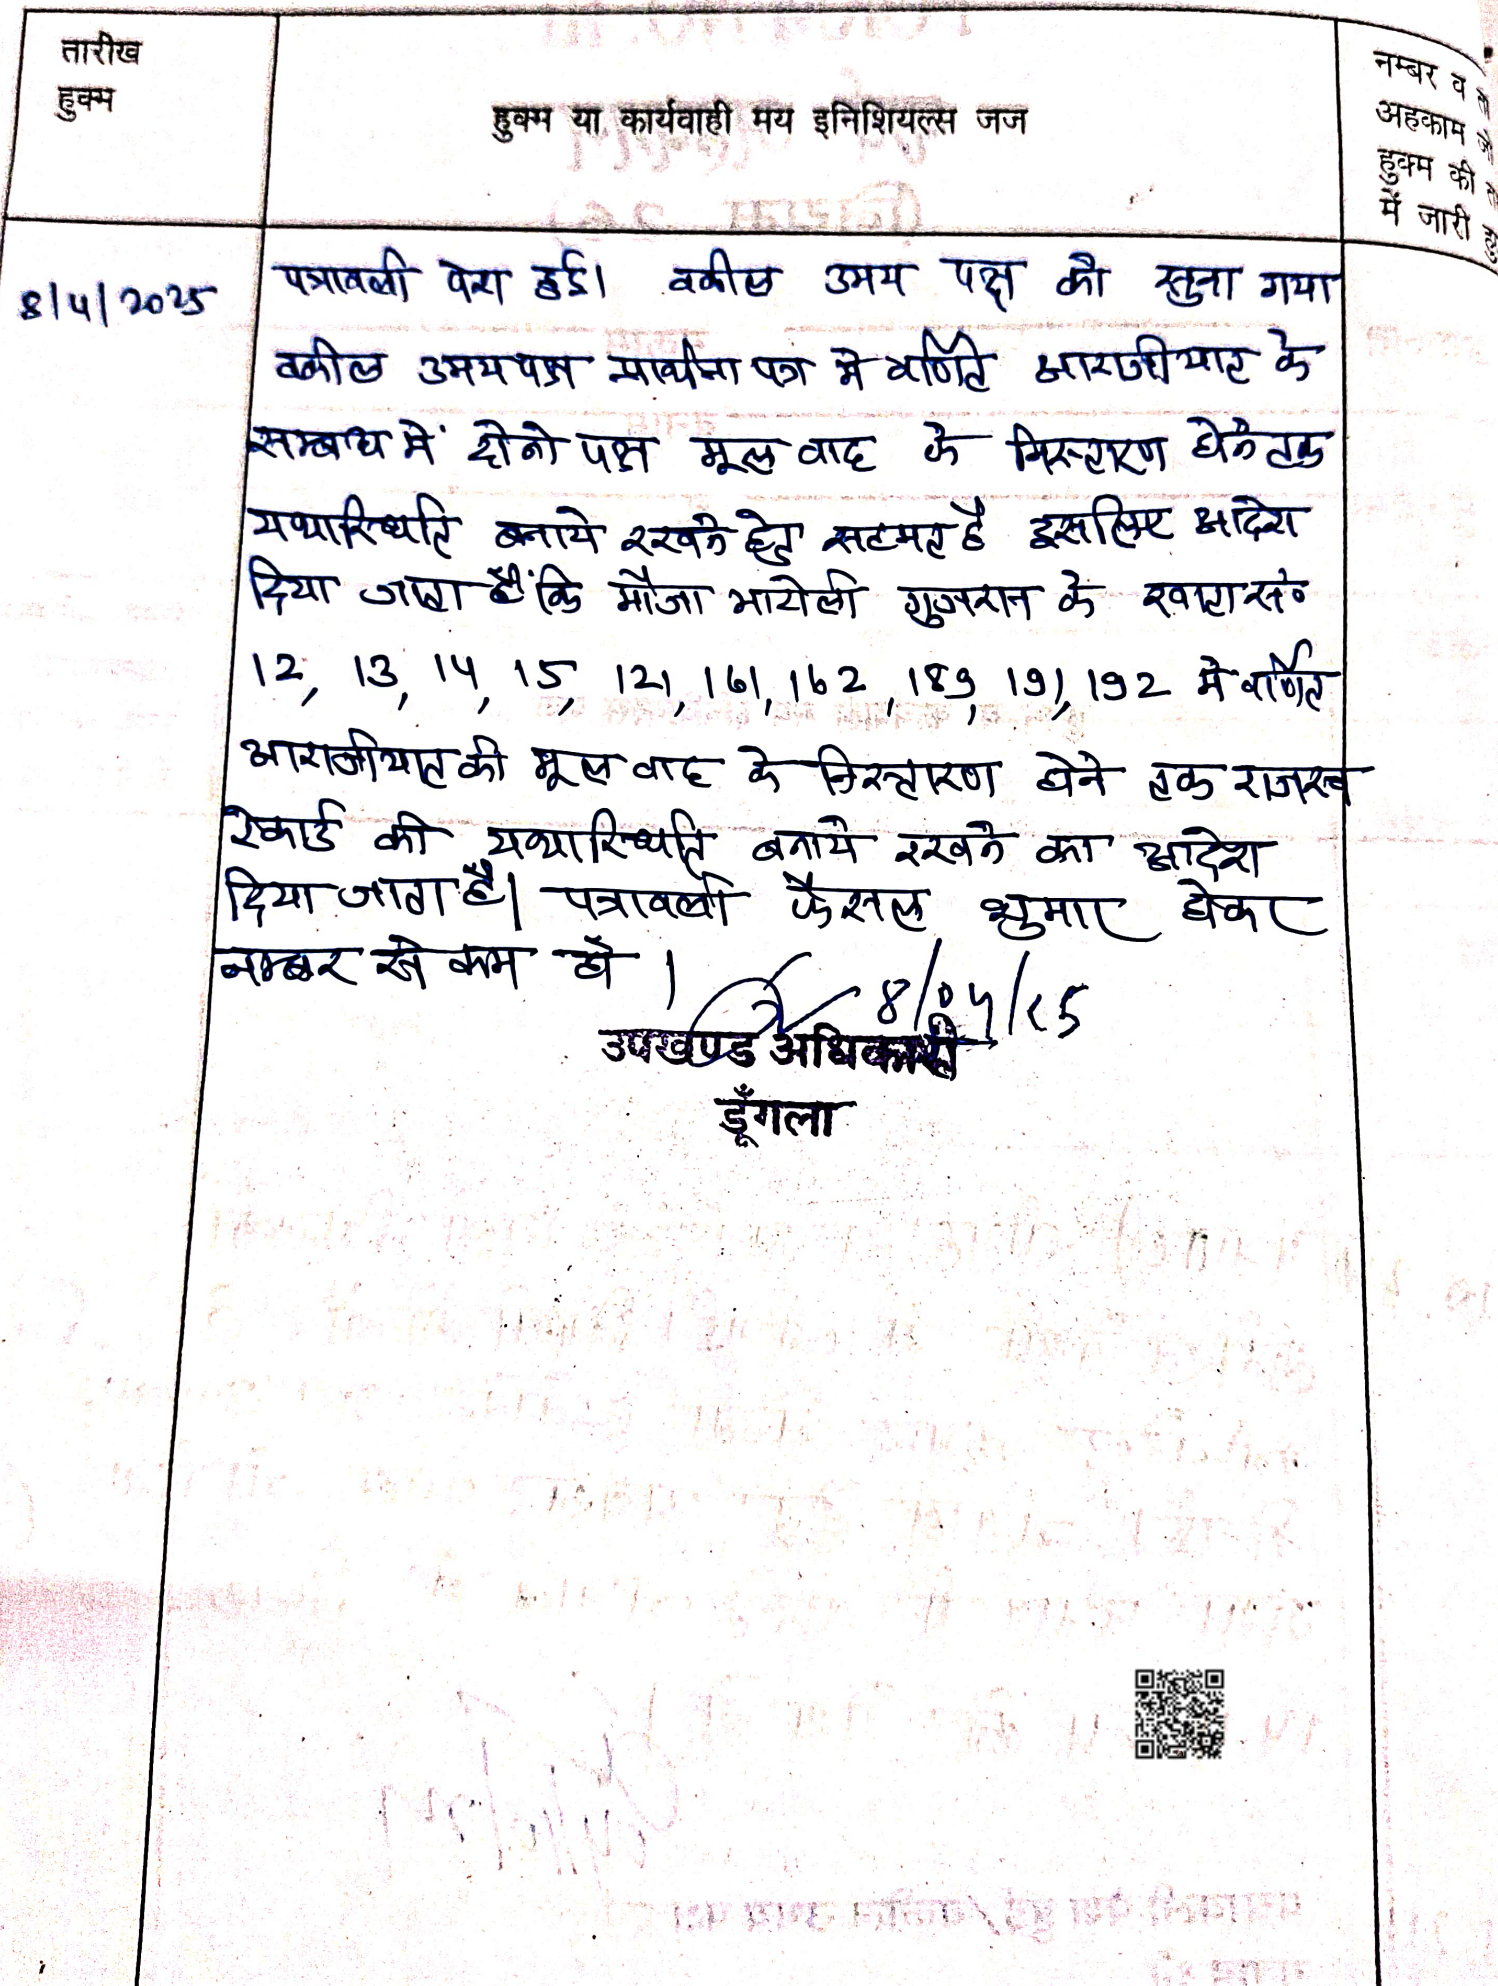 तारीख
हुक्म
हुक्म या कार्यवाही मय इनिशियल्स जज
नम्बर व
अहकाम
हुक्म की
में जारी
8/4/2025
पत्रावली पेश हुई। वकील उभय पक्ष को सुना गया
वकील उभयपक्ष प्रार्थना पत्र मे वर्णित आराजीयात के
सम्बन्ध में दोनो पक्ष मूल वाद के निस्तारण होने तक
यथास्थिति बनाये रखने हेतु सहमत है इसलिए आदेश
दिया जाता है कि मौजा गुजरान के खाता सं०
12, 13, 14, 15, 121, 161, 162, 189, 191, 192 मे वर्णित
आराजीयात की मूल वाद के निस्तारण होने तक राजस्व
रेकार्ड की यथास्थिति बनाये रखने का आदेश
दिया जाता है। पत्रावली फैसल शुमार होकर
नम्बर से कम हो।
8/04/25
उपखण्ड अधिकारी
डूँगला